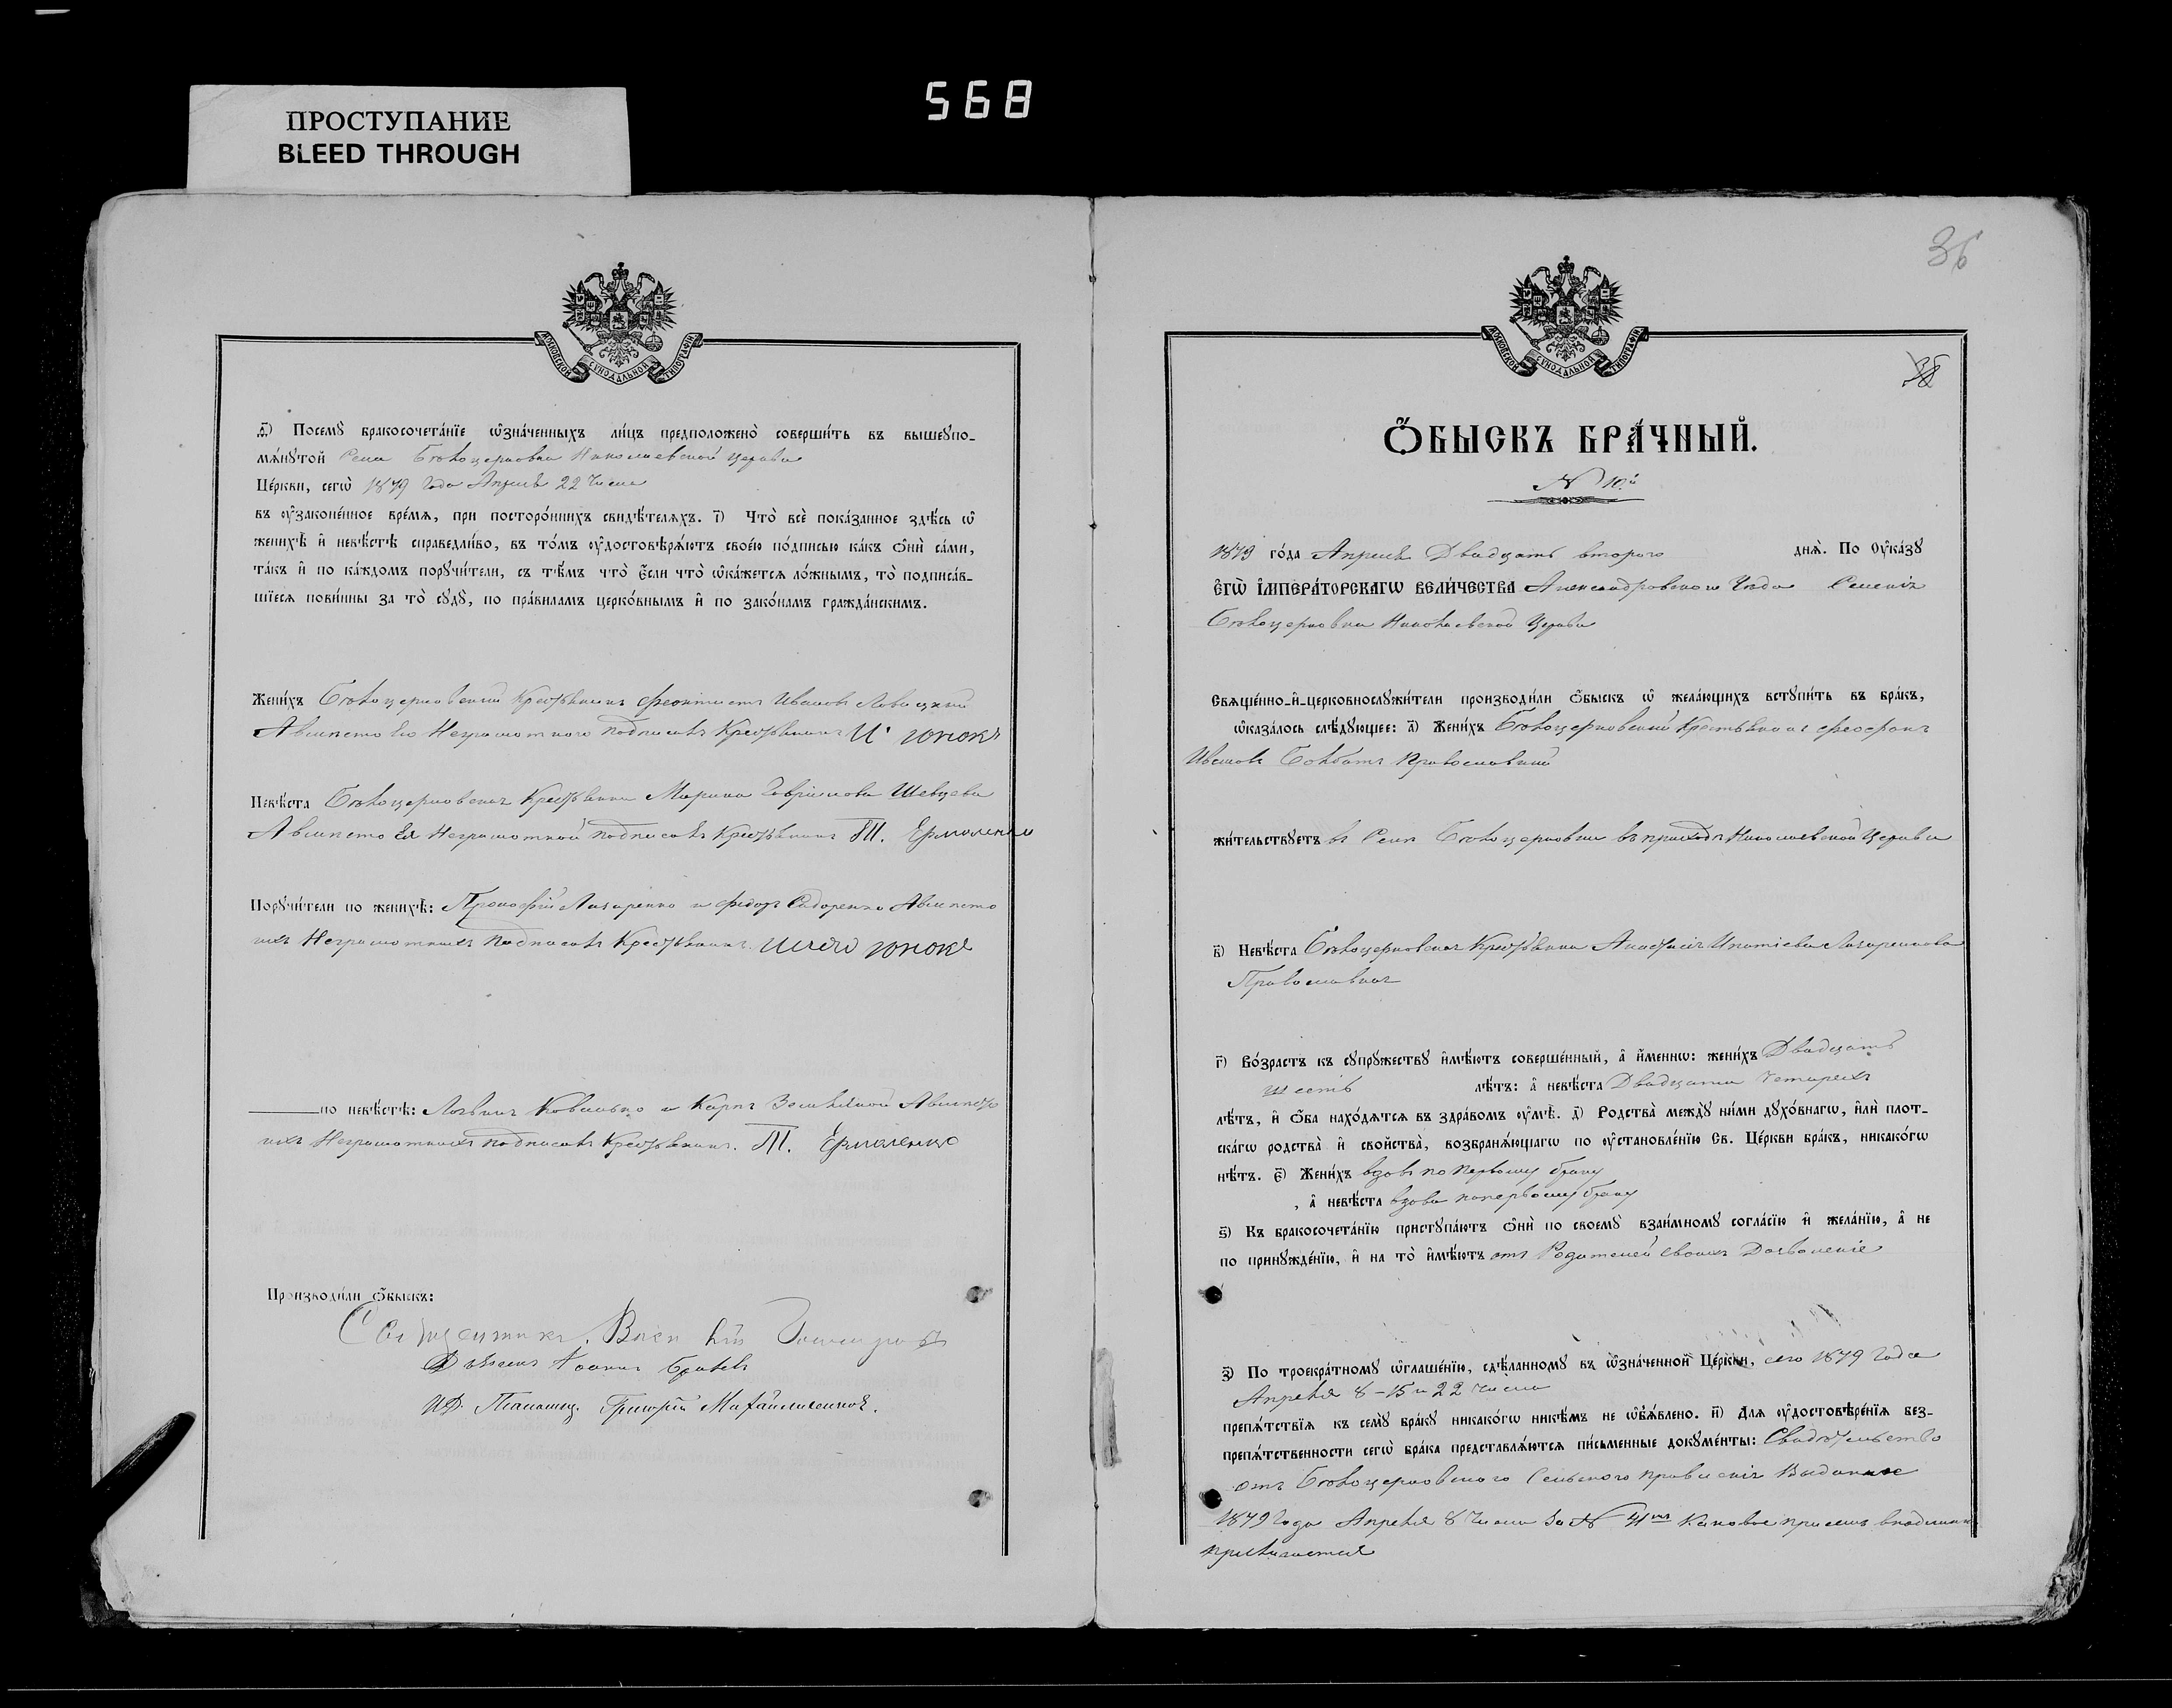 568
ПРОСТУПАНИЕ
BLEED THROUGH
МОСКОВСКОЙ СѴНОДАЛЬНОЙ ТИПОГРАФІИ
ѳ҃) Посемꙋ бракосочета́нїе ѡ҆зна́ченныхъ ли́цъ предположено̀ соверши́ть въ вышеꙋпо-
мѧ́нꙋтой Села Бѣлоцерковки Николаевской церкви
Це́ркви, сегѡ̀ 1879 года Апрѣля 22 числа
въ ᲂу҆законе́нное вре́мѧ, при посторо́ннихъ свидѣ́телѧхъ. і҃) Что̀ всѐ пока́занное здѣ́сь ѡ҆
женихѣ̀ и҆ невѣ́стѣ справедли́во, въ то́мъ ᲂу҆достовѣрѧ́ютъ свое́ю по́дписью ка́къ ѻ҆нѝ са́ми,
та́къ и҆ по ка́ждомъ порꙋчи́тели, съ тѣ́мъ что̀ є҆́сли что̀ ѡ҆ка́жетсѧ ло́жнымъ, то̀ подписа́в-
шїесѧ пови́нны за то̀ сꙋдꙋ̀, по пра́виламъ церко́внымъ и҆ по зако́намъ гражда́нскимъ.
Жени́хъ Бѣлоцерковский Крестьянинъ Феоктистъ Ивановъ
Авместо его Неграмотного подписалъ Крестьянинъ И. Юнокъ
Невѣ́ста Бѣлоцерковская Крестьянка Марина Гаврилова Шевцева
Авместо Ея Неграмотной подписалъ Крестьянинъ Т. Ермоленко
Порꙋчи́тели по женихѣ̀: Прокофій Лазаренко и Федоръ Сидоренко Авместо
ихъ Неграмотныхъ подписалъ Крестьянинъ Юнокъ
по невѣ́стѣ: Логвинъ Ковалько и Карпъ Авместо
ихъ Неграмотныхъ подписалъ Крестьянинъ. Т. Ермоленко
Производи́ли ѻ҆́быскъ:
Священникъ Василій
Дьяконъ Іоаннъ
И.Д. Псаломщ. Григорій
36
МОСКОВСКОЙ СѴНОДАЛЬНОЙ ТИПОГРАФІИ
Ѻ҆́БЫСКЪ БРА́ЧНЫЙ.
№ 10й
1879 го́да Апрѣля Двадцать второго днѧ̀. По ᲂу҆ка́зꙋ
Є҆гѡ̀ І҆мпера́торскагѡ Вели́чества Александровского Уѣзда Селенія
Бѣлоцерковки Николаевской Церкви
Свѧще́нно-и҆-церковнослꙋжи́тели производи́ли ѻ҆́быскъ ѡ҆ жела́ющихъ встꙋпи́ть въ бра́къ,
ѡ҆каза́лось слѣ́дꙋющее: а҃) Жени́хъ Бѣлоцерковский Крестьянинъ Феофанъ
Ивановъ Православный
жи́тельствꙋетъ въ Селѣ Бѣлоцерковки въ приходѣ Николаевской Церкви
в҃) Невѣ́ста Бѣлоцерковская Крестьянка Анастасія Ипатіева Лазаренкова
Православная
г҃) Во́зрастъ къ сꙋпрꙋ́жествꙋ и҆мѣ́ютъ соверше́нный, а҆ и҆́меннѡ: жени́хъ Двадцать
шесть лѣ́тъ: а҆ невѣ́ста Двадцати четырехъ
лѣ́тъ, и҆ ѻ҆́ба нахо́дѧтсѧ въ здра́вомъ ᲂу҆мѣ̀. д҃) Родства̀ междꙋ̀ ни́ми дꙋхо́внагѡ, и҆лѝ плот-
ска́гѡ родства̀ и҆ свойства̀, возбранѧ́ющагѡ по ᲂу҆становле́нїю Св. Це́ркви бра́къ, никако́гѡ
нѣ́тъ. є҃) Жени́хъ вдовъ по первому браку
, а҆ невѣ́ста вдова по первому браку
ѕ҃) Къ бракосочета́нїю пристꙋпа́ютъ ѻ҆нѝ по своемꙋ̀ взаи́мномꙋ согла́сїю и҆ жела́нїю, а҆ не
по принꙋжде́нїю, и҆ на то̀ и҆мѣ́ютъ отъ Родителей своихъ Дозволеніе
з҃) По троекра́тномꙋ ѡ҆глаше́нїю, сдѣ́ланномꙋ въ ѡ҆зна́ченной Це́ркви, сего 1879 года
Апрѣля 8 - 15 и 22 числа
препѧ́тствїѧ къ семꙋ̀ бра́кꙋ никако́гѡ никѣ́мъ не ѡ҆бъѧ́влено. и҃) Длѧ ᲂу҆достовѣре́нїѧ без-
препѧ́тственности сегѡ̀ бра́ка представлѧ́ютсѧ пи́сьменные докꙋме́нты: Свидѣтельство
отъ Бѣлоцерковского Сельского правленія Выданное
1879 года Апрѣля 8 числа за № Каковое при семъ
прилагается